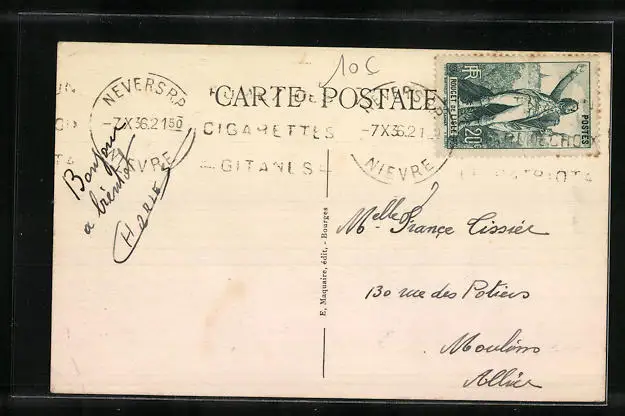 10c
CARTE POSTALE
NEVERS R.P.
-7 X 36.2150
NIEVRE
CIGARETTES
- GITANES -
-7X36.21
NIEVRE
RF
ROUGET DE LISLE
20c
POSTES
Bonjour
a bientôt
E. Maquaire, édit. - Bourges
Melle France Tissier
130 rue des Potiers
Moulins
Allier